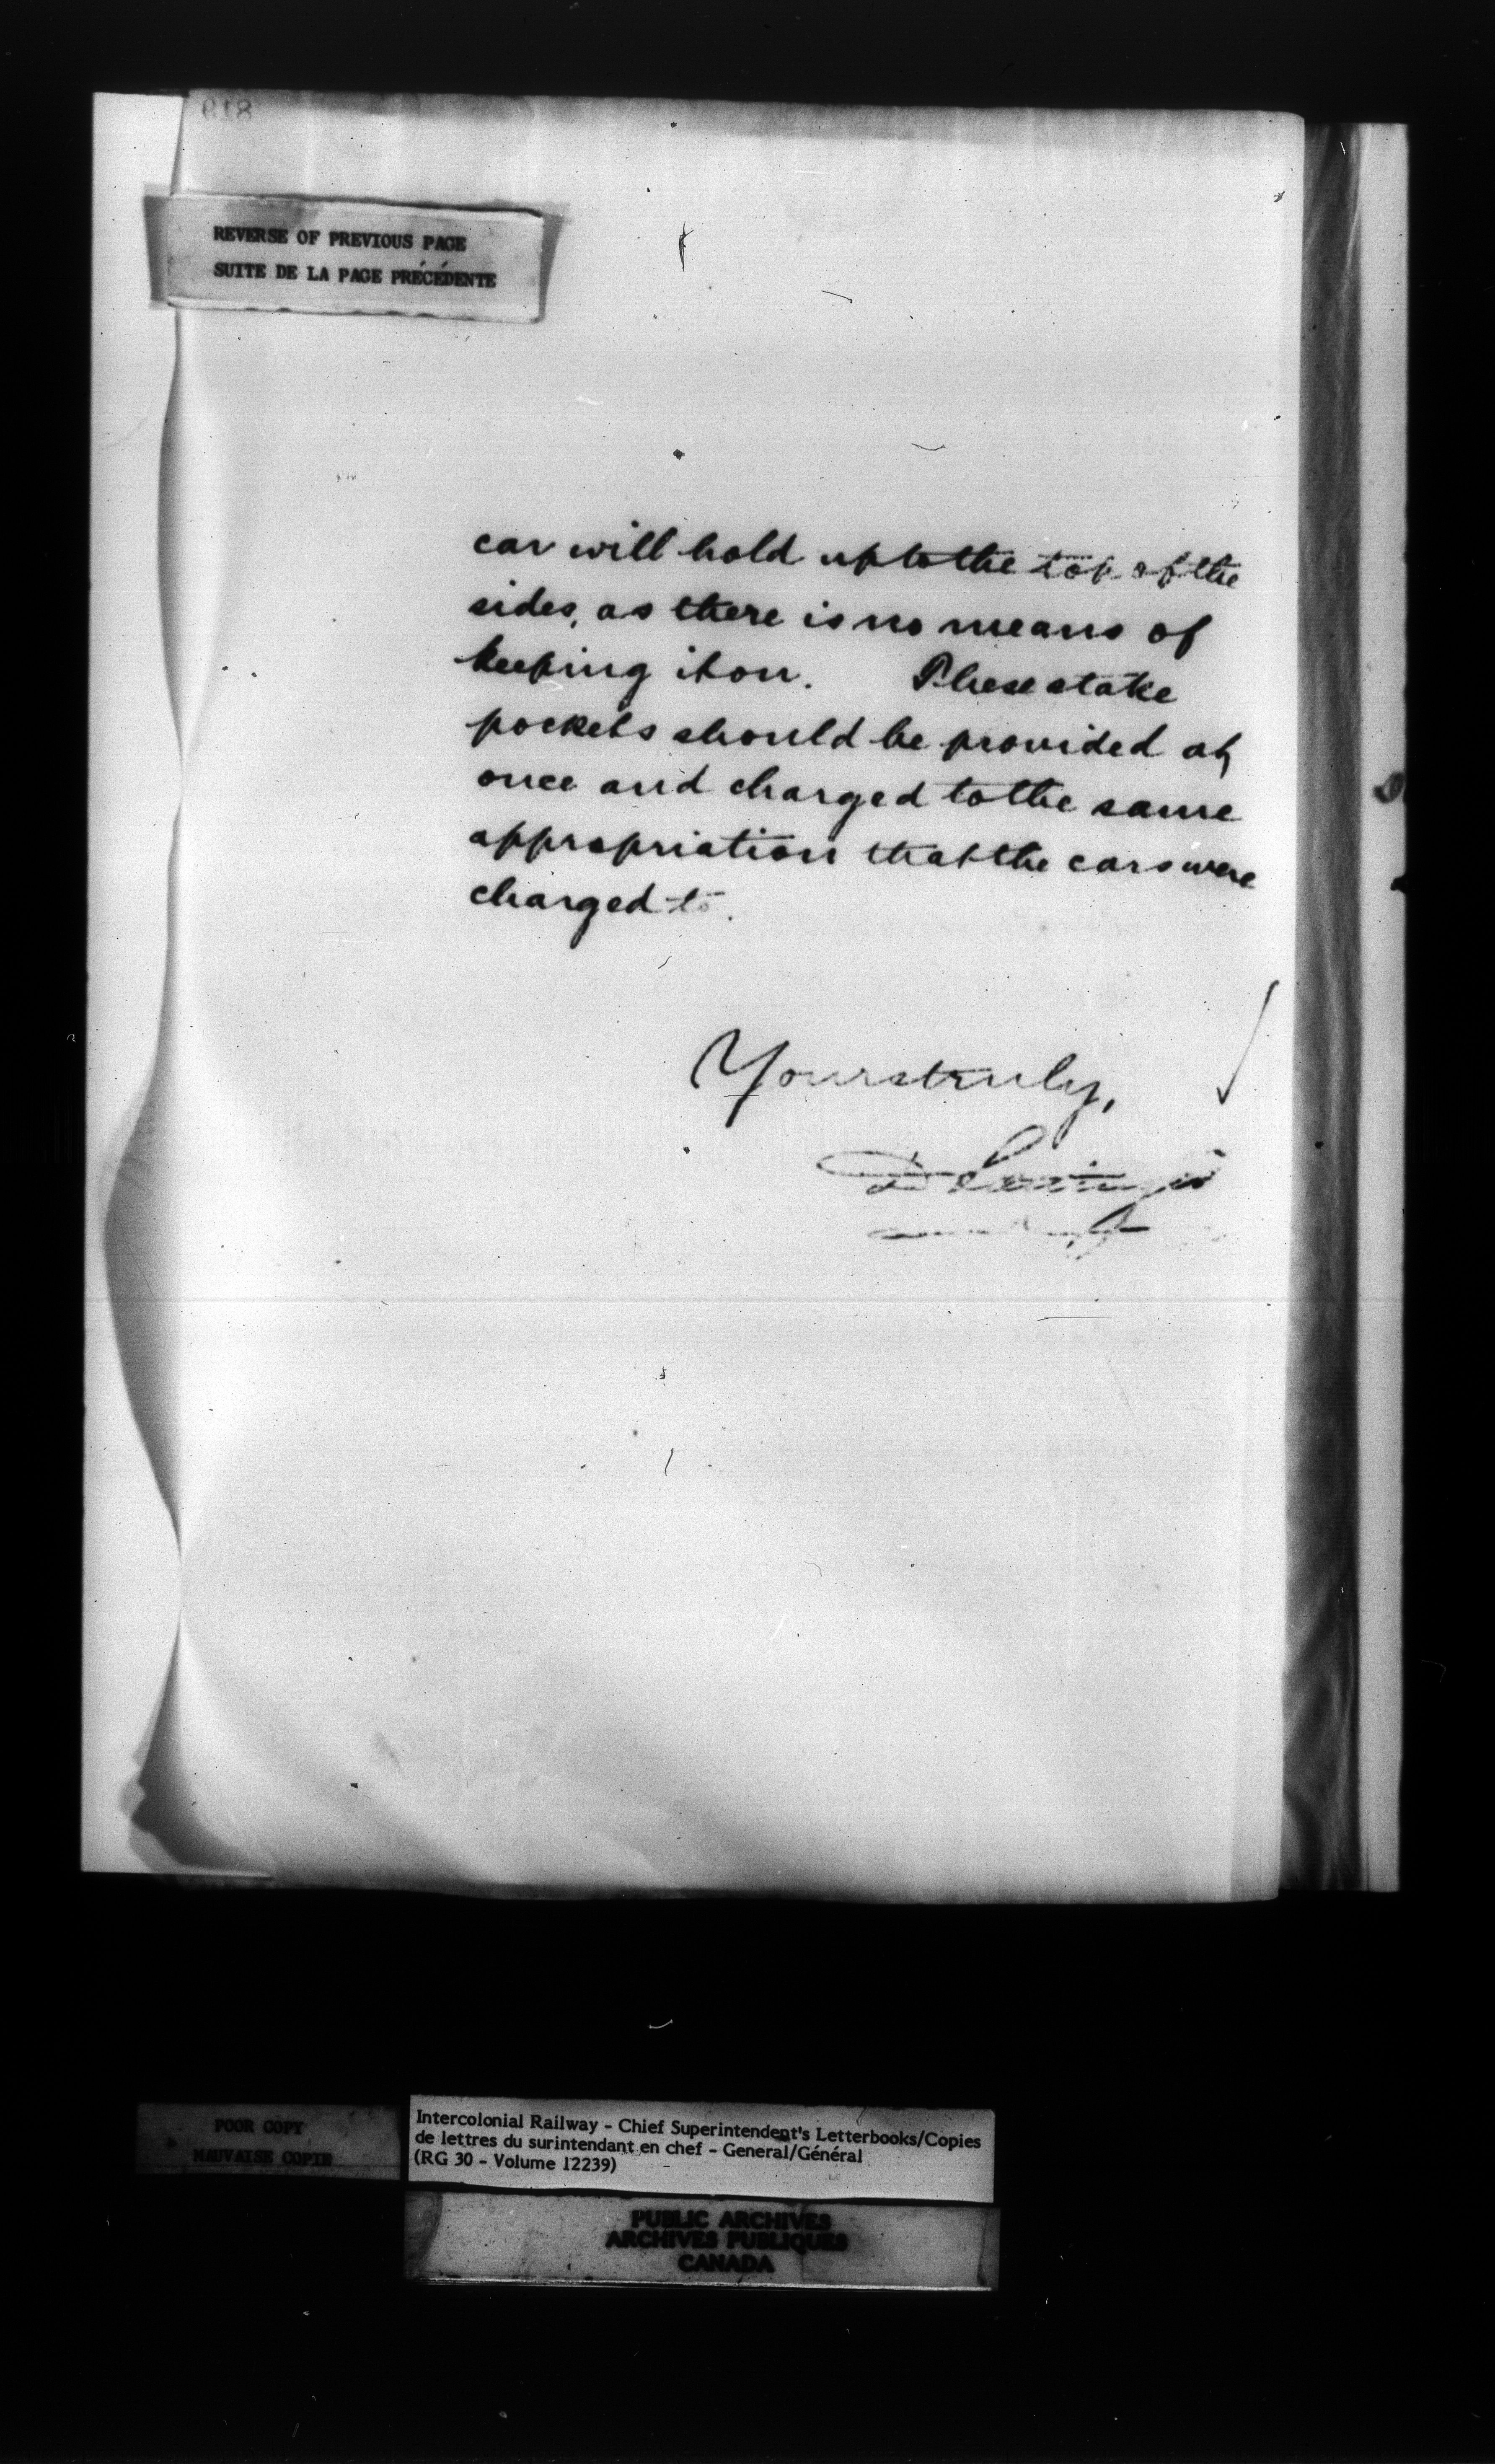 818
REVERSE OF PREVIOUS PAGE
SUITE DE LA PAGE PRÉCÉDENTE
car will hold up to the top of the
sides, as there is no means of
keeping it on. These stake
pockets should be provided at
once and charged to the same
appropriation that the cars were
charged to.
Yours truly,
D
POOR COPY
MAUVAISE COPIE
Intercolonial Railway - Chief Superintendent's Letterbooks/Copies
de lettres du surintendant en chef - General/Général
(RG 30 - Volume 12239)
PUBLIC ARCHIVES
ARCHIVES PUBLIQUES
CANADA